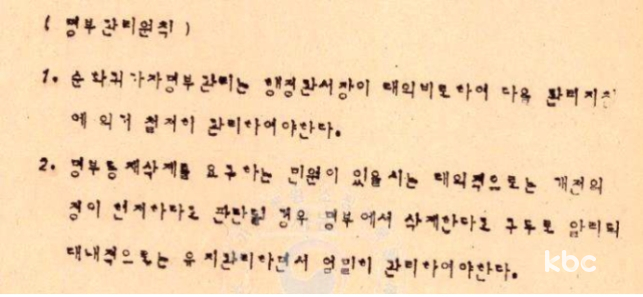 ( 명부관리원칙 )
1. 순화귀가자명부관리는 행정관서장이 대외비로하여 다음 관리지침
에 의거 철저히 관리하여야한다.
2. 명부등재삭제를 요구하는 민원이 있을시는 대외적으로는 개전의
정이 현저하다고 판단될 경우 명부에서 삭제한다고 구두로 알리되
대내적으로는 유지관리하면서 엄밀히 관리하여야한다.
kbc